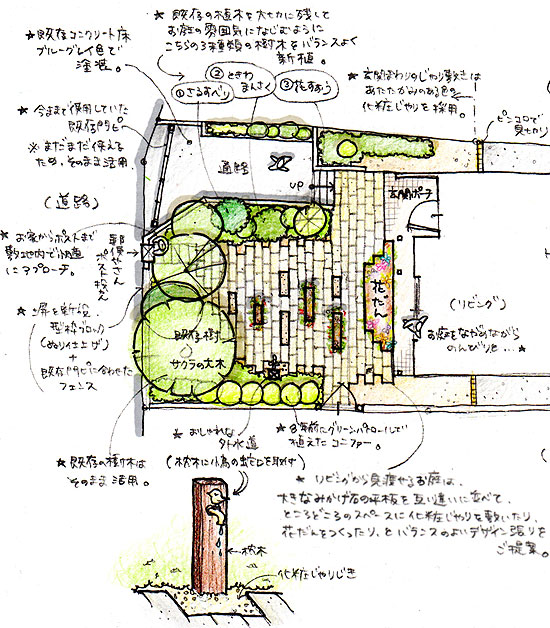 ★既存の植木を大切に残して
お庭の雰囲気になじむように
こちらの3種類の樹木をバランスよく
新植。
★既存コンクリート床
ブルーグレイ色で
塗装。
①さるすべり
②ときわ
まんさく
③花ずおう
★玄関まわりのじゃり敷きは
あたたかみのある色の
化粧じゃりを採用。
ピンコロで
見切り
★今まで使用していた
既存門ピ
※まだまだ使える
ため、そのまま活用
通路
UP
玄関ポーチ
(道路)
★お家からポストまで
敷地内で快適
にアプローチ。
郵便やさん
ポスト投かん
花だん
(リビング)
お庭をながめながら
のんびりと...★
★塀を新設
型枠ブロック
(ぬり仕上げ)
+
既存門ピに合わせた
フェンス
既存樹
サクラの大木
★おしゃれな
外水道
(枕木に小鳥の蛇口を取付)
★8年前にグリーンパトロールして
植えたコニファー。
★既存の樹木は
そのまま活用。
★リビングから見渡せるお庭は、
大きなみかげ石の平板を互い違いに並べて、
ところどころのスペースに化粧じゃりを敷いたり、
花だんをつくったり、とバランスのよいデザイン張りを
ご提案。
枕木
化粧じゃりじき